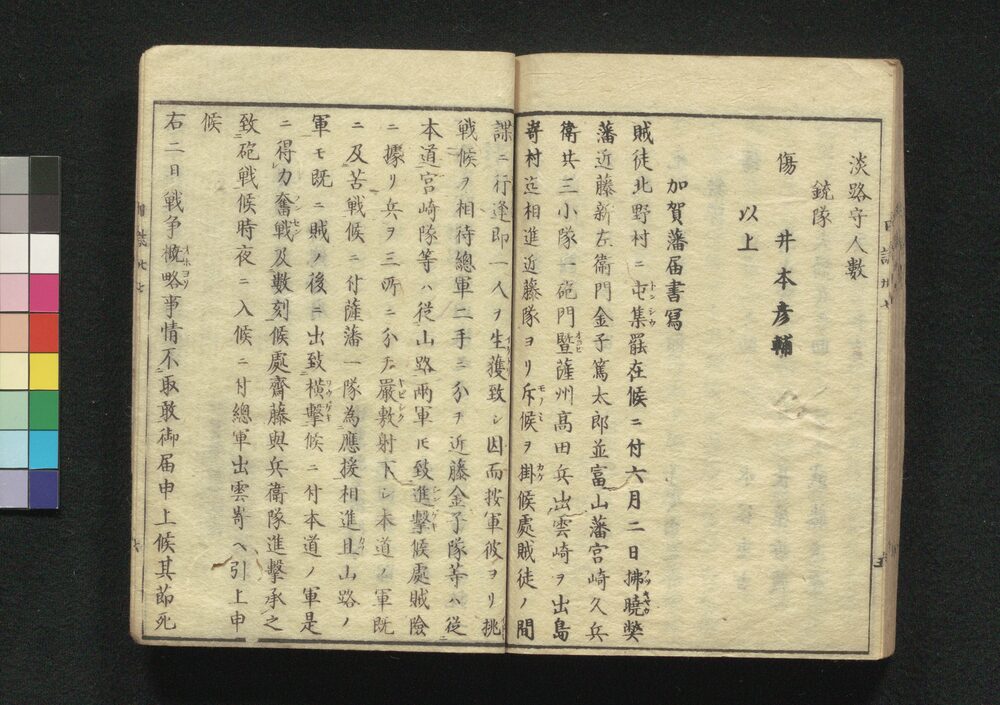 淡路守人數
銃隊
傷 井本彦輔
以上
加賀藩届書寫
賊徒北野村ニ屯集罷在候ニ付六月二日拂曉弊
藩近藤新左衛門金子篤太郎並富山藩宮崎久兵
衛共三小隊一砲門曁薩州髙田兵出雲崎ヲ出島
嵜村迄相進近藤隊ヨリ斥候ヲ掛候處賊徒ノ間
諜ニ行逢即一人ヲ生獲致シ因而按軍彼ヨリ挑
戦候ヲ相待總軍二手ニ分チ近藤金子隊等ハ從
本道宮崎隊等ハ従山路兩軍ヒ致進撃候處賊險
ニ據リ兵ヲ三所ニ分チ嚴敷射下シ本道ノ軍既
ニ及苦戦候ニ付薩藩一隊為應援相進且山路ノ
軍モ既ニ賊ノ後ニ出致横撃候ニ付本道ノ軍是
ニ得力奮戦及數刻候處齋藤與兵衛隊進撃承之
致砲戦候時夜ニ入候ニ付總軍出雲嵜ヘ引上申
候
右二日戦争概略事情不取敢御届申上候其節死